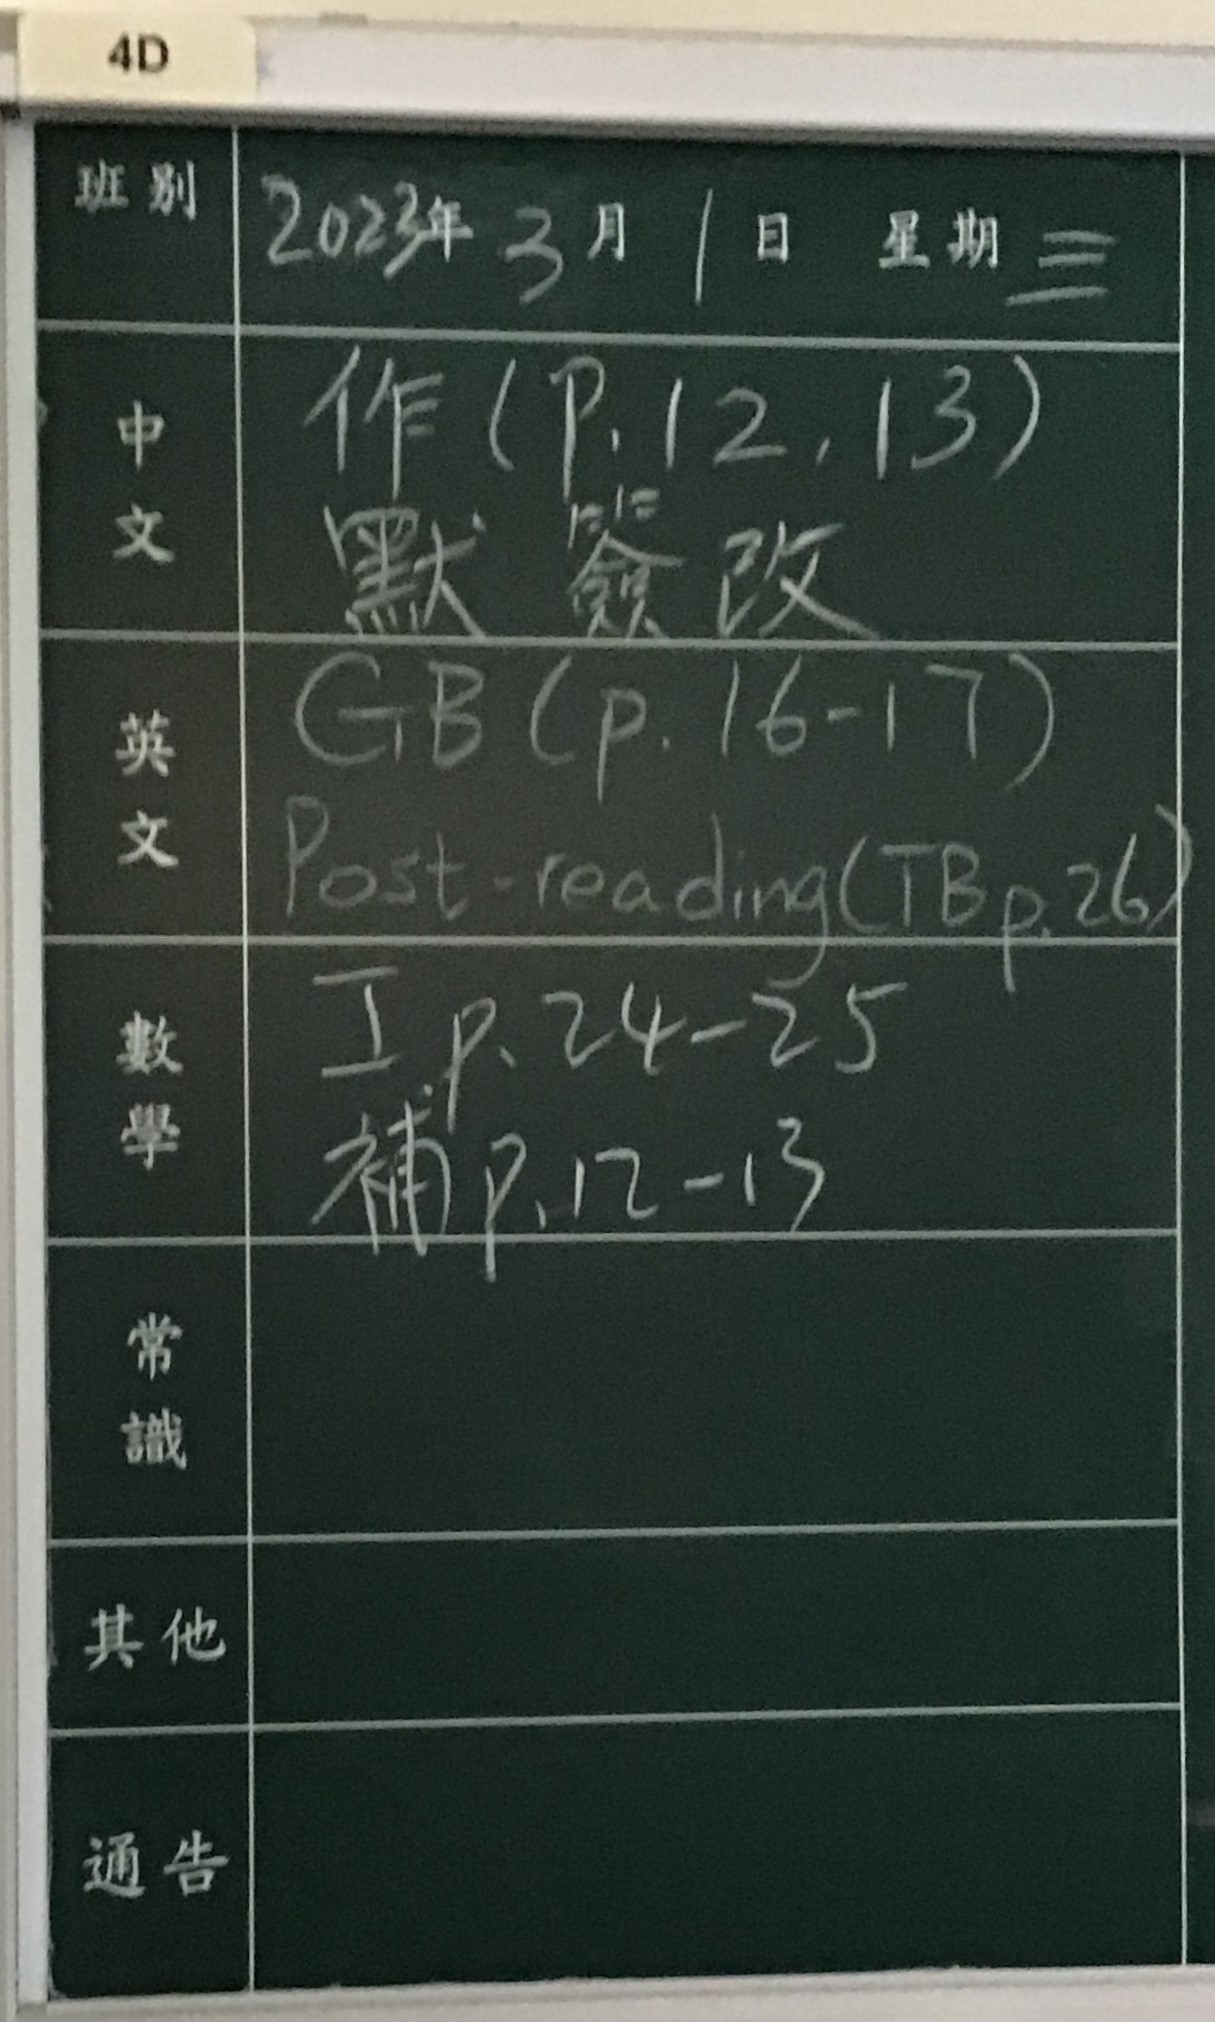 4D
班別
2023年 3月 1日 星期三
中文
作(P.12,13)
默 簽 改
英文
GB (p. 16-17)
Post-reading(TB p.26)
數學
工 p.24-25
補 p.12-13
常識
其他
通告